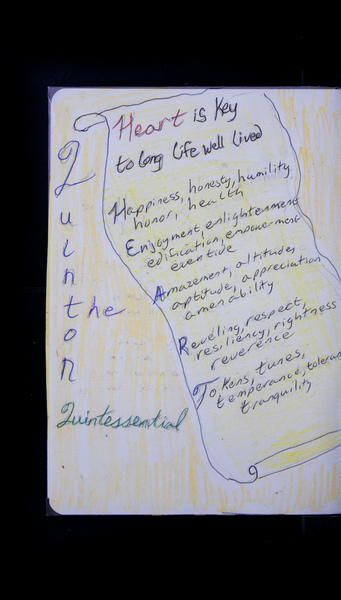 Heart is Key
to long life well lived
Happiness, honesty, humility
honor, health
Enjoyment, enlightenment
edification, empowerment
eventide
Amazement, altitude,
aptitude, appreciation
amenability
Reveling, respect,
resiliency, rightness
reverence
Tokens, tunes,
temperance, toleran
tranquility
Quinton
the
Quintessential